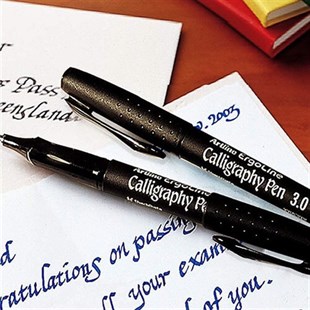 s Pass
eensland
2003
Artline ErgoLine
Calligraphy Pen 3.0
Artline ErgoLine
Calligraphy Pen
gratulations on passing
ll your exam
of you.